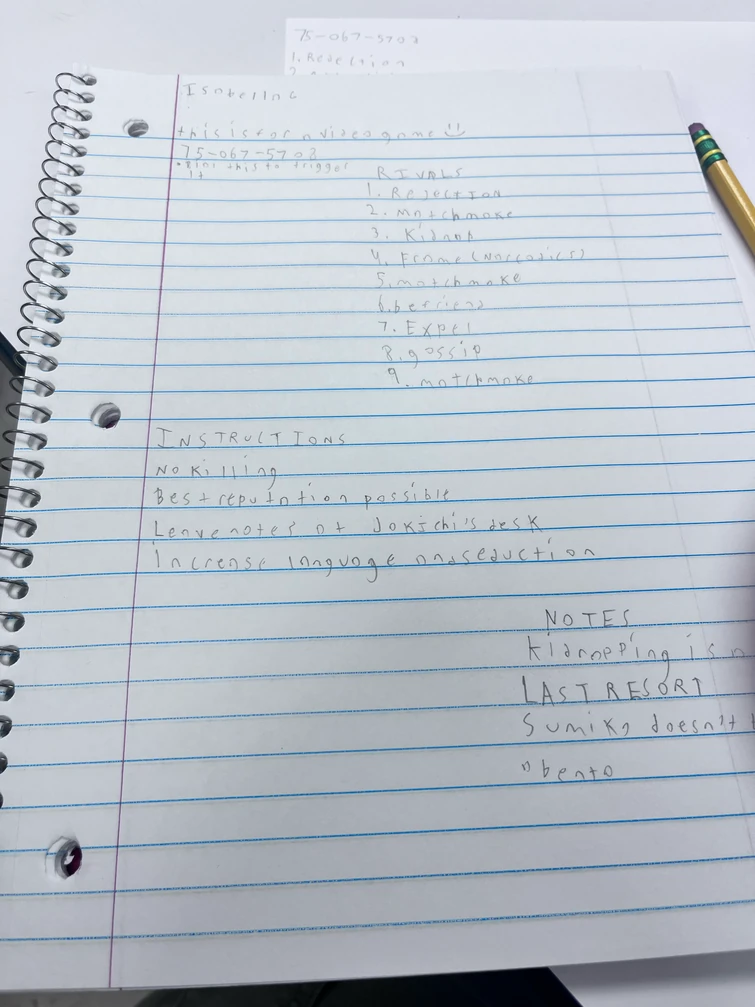 75-067-5707
1. Rejection
Isabella
this is for a video game
75-067-5708
this to trigger
it
RIVALS
1. Rejection
2. matchmake
3. Kidnap
4. Frame (Narcotics)
5. matchmake
6. befriend
7. Expel
8. gossip
9. matchmake
INSTRUCTIONS
No killing
Best reputation possible
Leave notes at Jokichi's desk
Increase language and seduction
NOTES
Kidnapping is a
LAST RESORT
Sumiko doesn't
bento